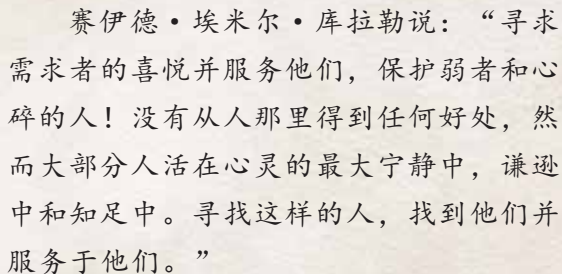 赛伊德•埃米尔•库拉勒说：“寻求
需求者的喜悦并服务他们，保护弱者和心
碎的人！没有从人那里得到任何好处，然
而大部分人活在心灵的最大宁静中，谦逊
中和知足中。寻找这样的人，找到他们并
服务于他们。”